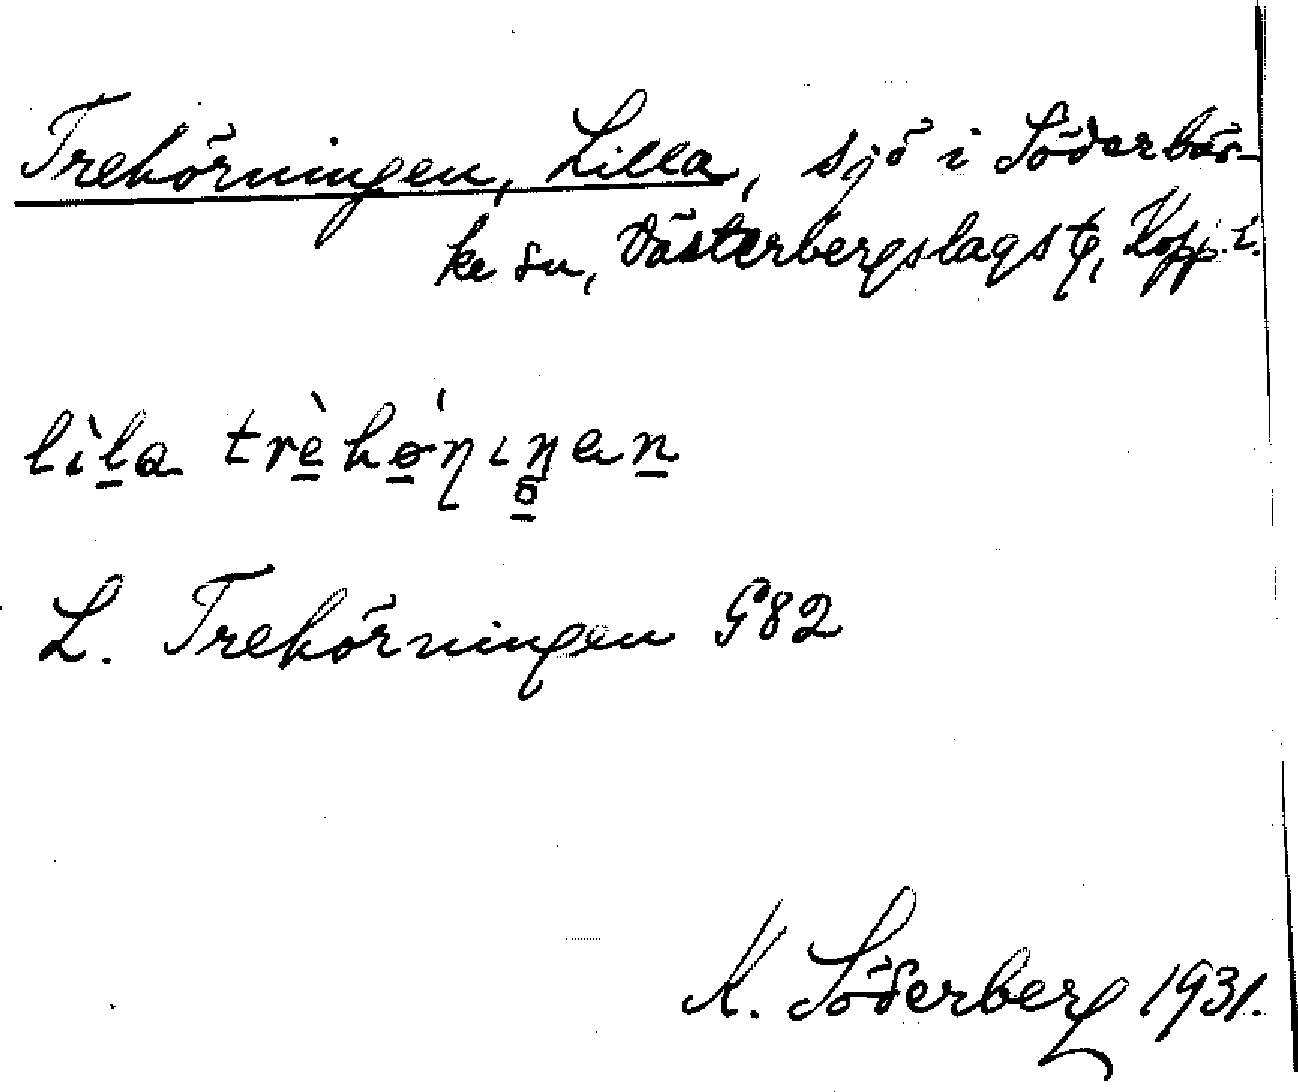 Trehörningen, Lilla, sjö i Söderbär-
ke sn, Västerbergslags tg, Kopp. l.
lìla trèhø̀ńıŋan
L. Trehörningen G82
K. Söderberg 1931.